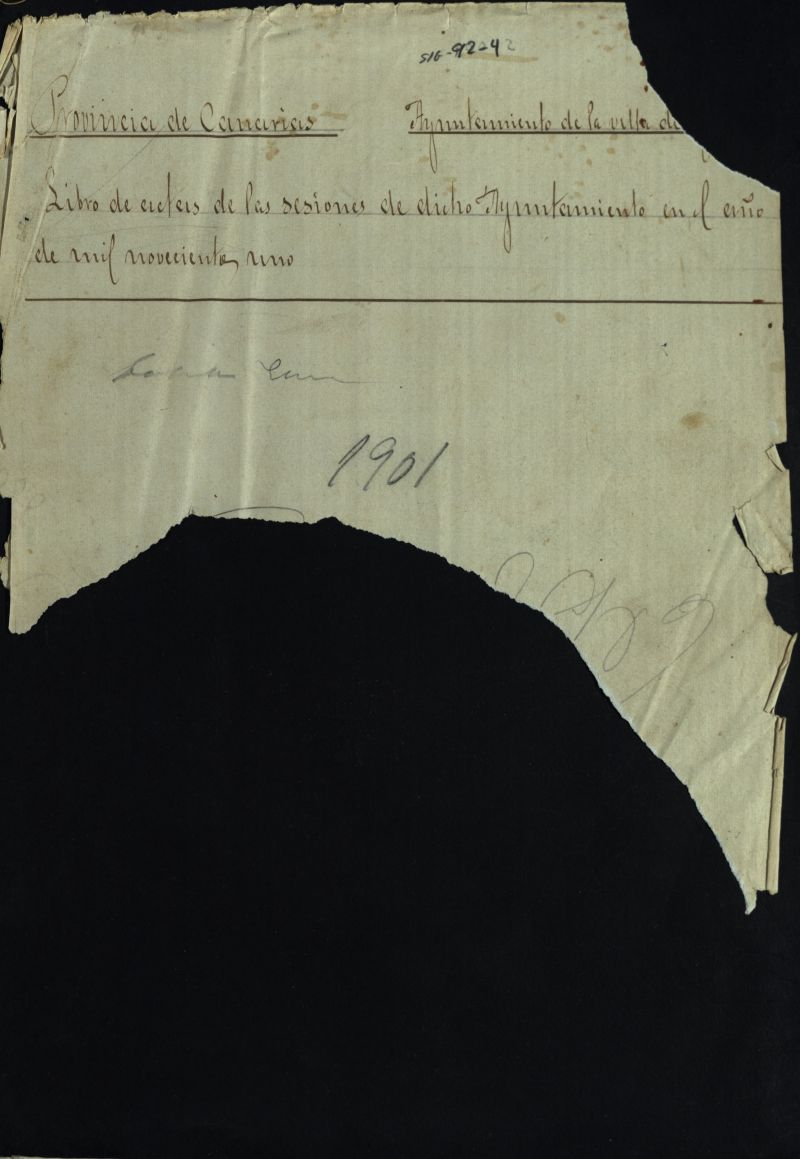 SIG-92-42
Provincia de Canarias Ayuntamiento de la villa de
Libro de actas de las sesiones de dicho Ayuntamiento en el año
de mil novecientos uno
1901